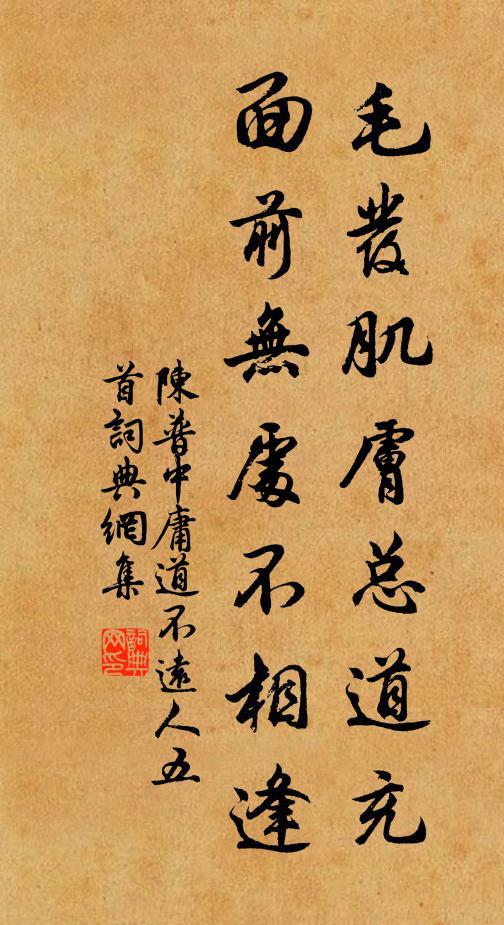 毛發肌膚总道充
面前無處不相逢
陳普中庸道不遠人五
首詞典網集
詞典
网印